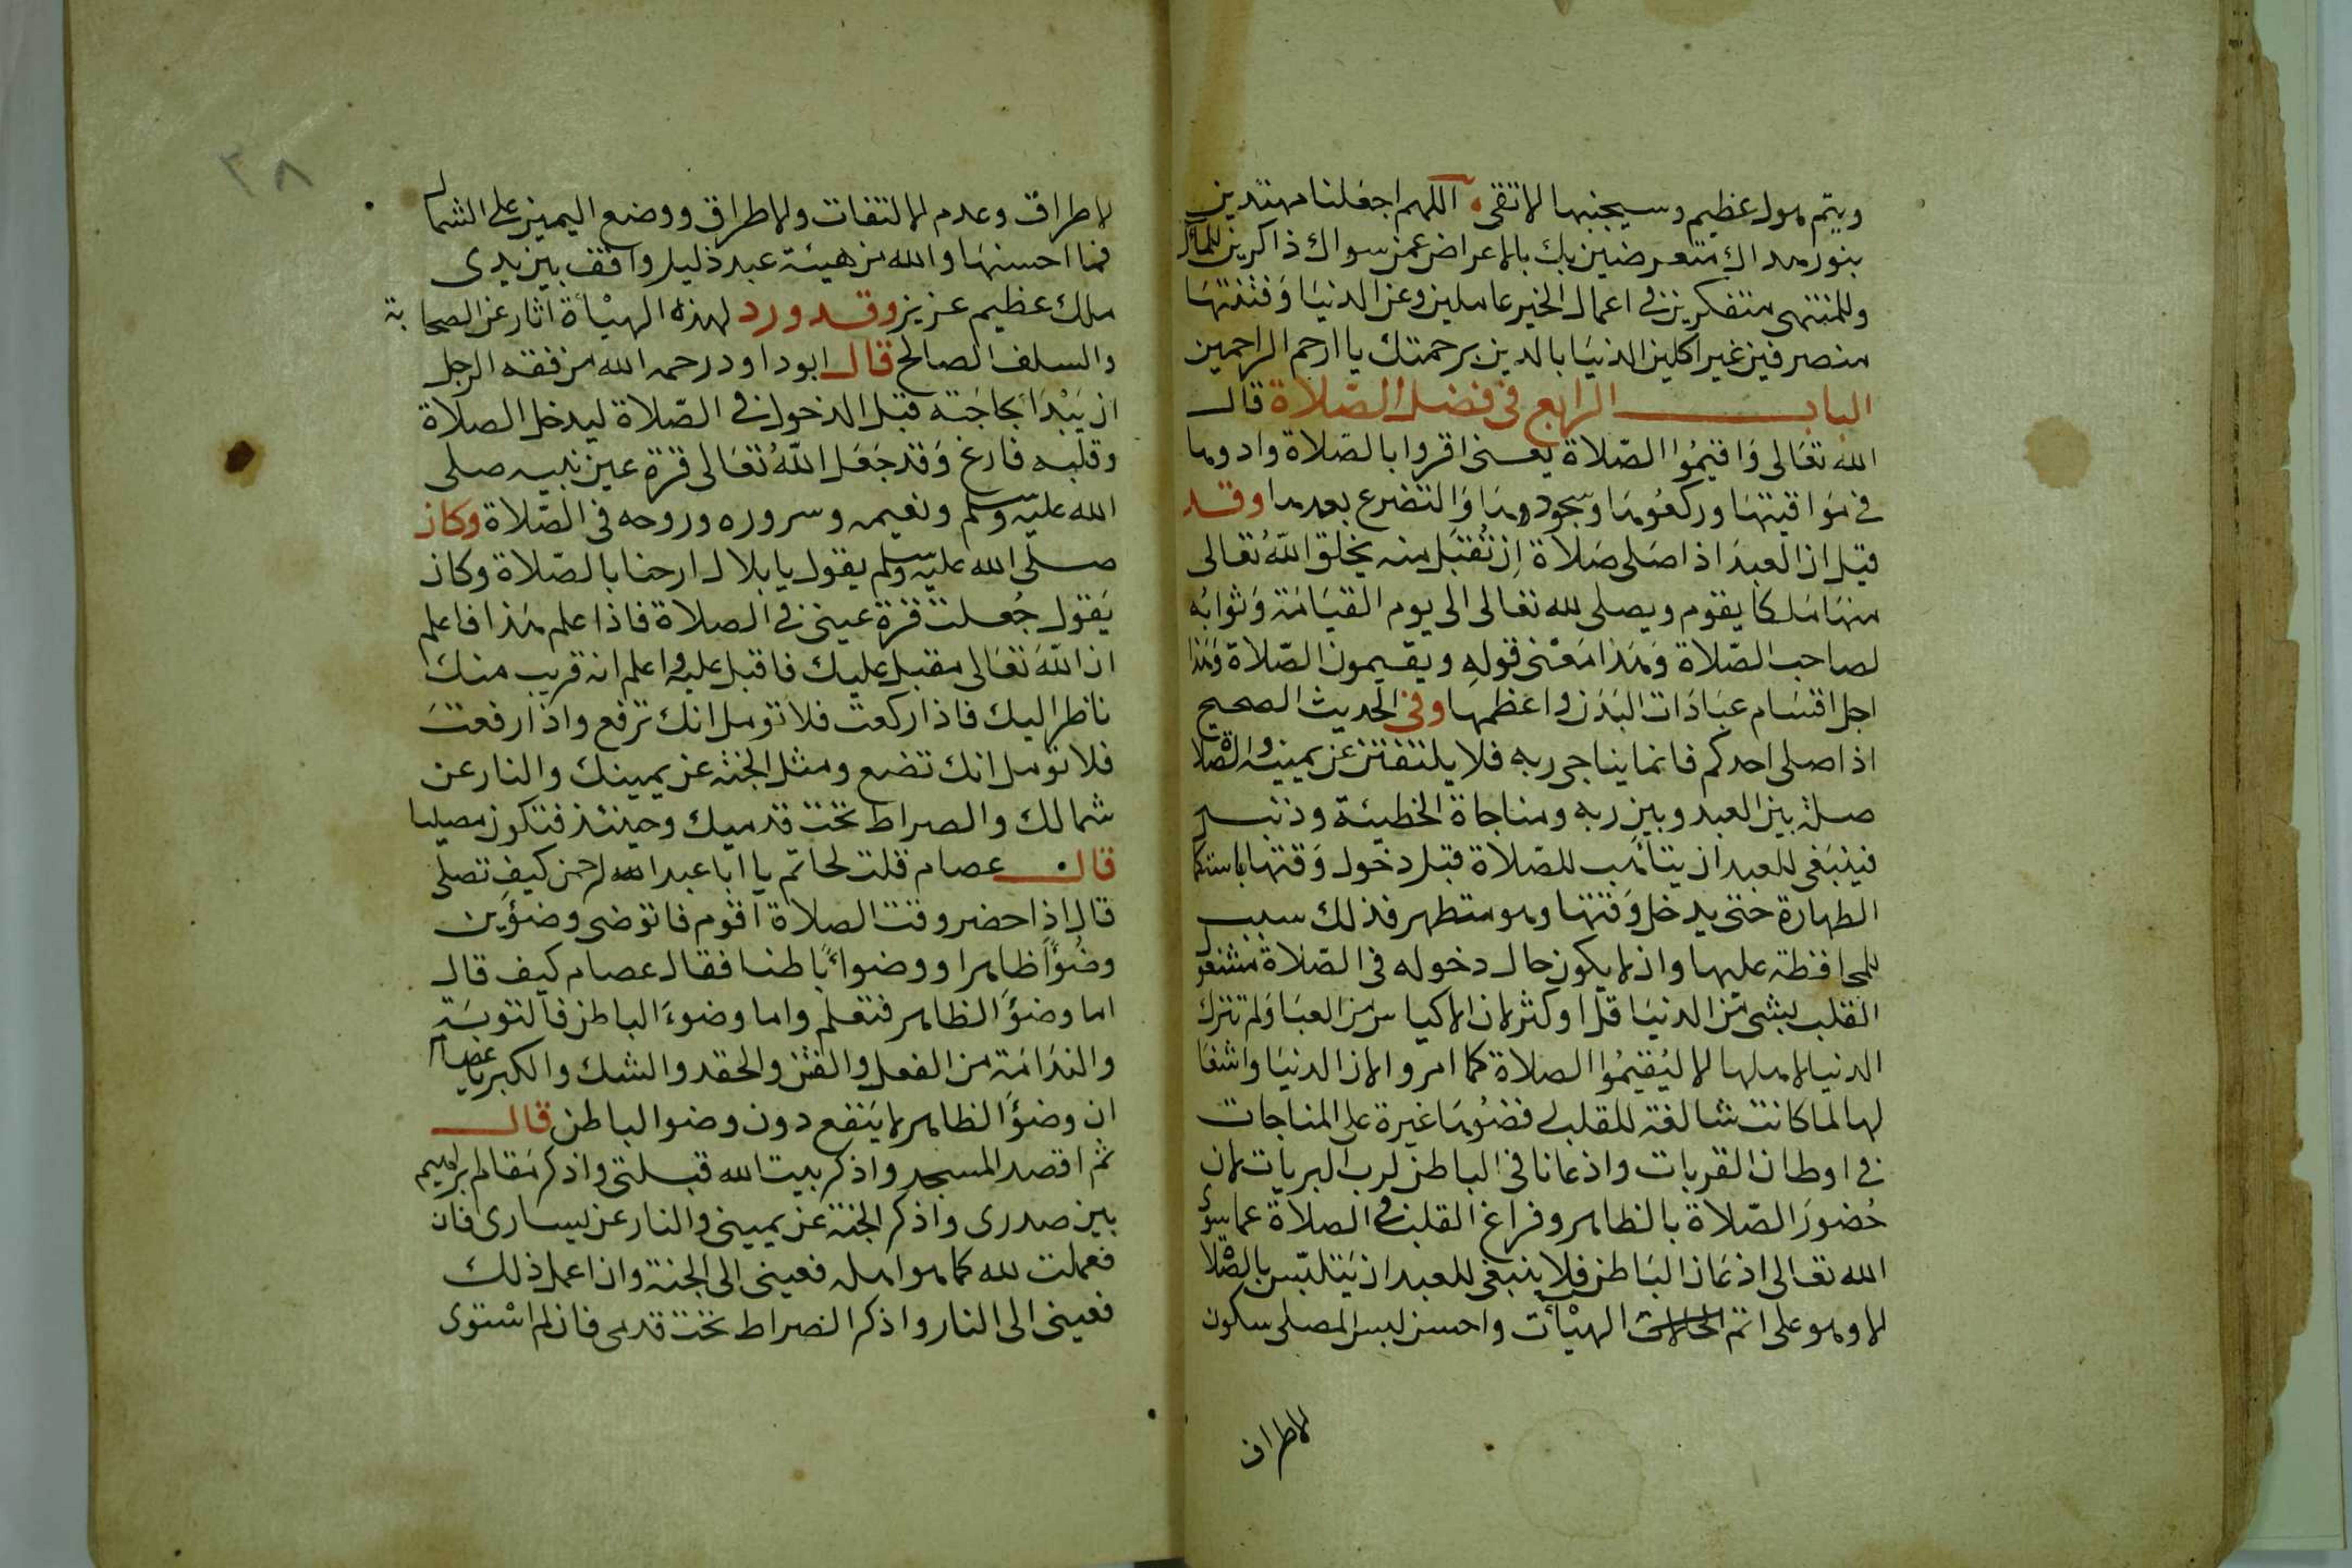 ويتم هول عظيم وسيجنبها الاتقى اللهم اجعلنا مهتدين
بنور هداك متعرضين بك بالاعراض عمن سواك ذاكرين للمآل
وللمنتهى متفكرين في اعمال الخير عاملين وعن الدنيا وفتنتها
منصرفين غير اكلين الدنيا بالدين برحمتك يا ارحم الراحمين
الباب الرابع في فضل الصلاة قال
الله تعالى واقيموا الصلاة يعنى اقروا بالصلاة وادومها
في مواقيتها وركعوها وسجودها والتضرع بعدها وقد
قيل ان العبد اذا صلى صلاة ان تقبل منه يخلق الله تعالى
منها ملكا يقوم ويصلى لله تعالى الى يوم القيامة وثوابه
لصاحب الصلاة وهذا معنى قوله ويقيمون الصلاة وهذا
اجل اقسام عبادات البدن واعظمها وفي الحديث الصحيح
اذا صلى احدكم فانما يناجى ربه فلا يلتفتن عن يمينه والصلاة
صلة بين العبد وبين ربه ومناجاة الخطيئة وذنب
فينبغى للعبد ان يتأهب للصلاة قبل دخول وقتها باستكما
الطهارة حتى يدخل وقتها وهو متطهر فذلك سبب
للمحافظة عليها وان لا يكون حال دخوله في الصلاة مشغول
القلب بشى من الدنيا قل او كثر لان الاكياس من العبا ولم تترك
الدنيا لاهلها الا ليقيموا الصلاة كما امروا لان الدنيا واشغا
لها لما كانت شالغة للقلب فضوها غيرة على المناجات
في اوطان القربات واذعانا في الباطن لرب البريات لان
حضور الصلاة بالظاهر وفراغ القلب في الصلاة عما سوى
الله تعالى اذعان الباطن فلا ينبغى للعبد ان يتلبس بالصلا
الا وهو على اتم الحالات الهيأت واحسن لبس المصلى سكون
الاطراف
٣٨
الاطراف وعدم الالتفات والاطراق ووضع اليمين على الشمال
فما احسنها والله من هيئة عبد ذليل واقف بين يدى
ملك عظيم عزيز وقد ورد لهذه الهيأة اثار عن الصحابة
والسلف الصالح قال ابو داود رحمه الله من فقه الرجل
ان يبدأ بحاجته قبل الدخول في الصلاة ليدخل الصلاة
وقلبه فارغ وقد جعل الله تعالى قرة عين نبيه صلى
الله عليه وسلم ونعيمه وسروره وروحه في الصلاة وكان
صلى الله عليه وسلم يقول يا بلال ارحنا بالصلاة وكان
يقول جعلت قرة عينى في الصلاة فاذا علم هذا فاعلم
ان الله تعالى مقبل عليك فاقبل عليه واعلم انه قريب منك
ناظر اليك فاذا ركعت فلا تومل انك ترفع واذا رفعت
فلا تومل انك تضع ومثل الجنة عن يمينك والنار عن
شمالك والصراط تحت قدميك وحينئذ فتكون مصليا
قال عصام قلت لحاتم يا ابا عبد الله الرحمن كيف تصلى
قال اذا حضر وقت الصلاة اقوم فاتوضى وضوين
وضوأ ظاهرا ووضواءً باطنا فقال عصام كيف قال
اما وضؤ الظاهر فتعلم واما وضوء الباطن فالتوبة
والندامة من الفعل والغش والحقد والشك والكبر يا عصام
ان وضؤ الظاهر لا ينفع دون وضوا لباطن قال
ثم اقصد المسجد واذكر بيت الله قبلتى واذكر مقام ابراهيم
بين صدرى واذكر الجنة عن يمينى والنار عن يسارى فان
فعملت لله كما هو اهله فعينى الى الجنة وان اعمل ذلك
فعينى الى النار واذكر الصراط تحت قدمى فان لم استوى